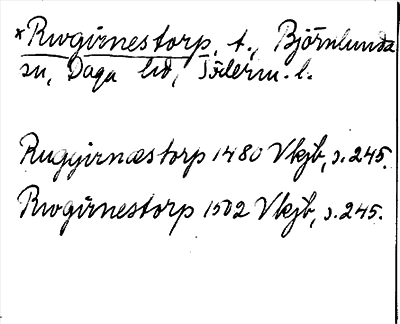 *Rwgirnestorp, t., Björnlunda
sn, Daga hd, Söderm. l.
Ruggirnæstorp 1480 Vkjb, s. 245.
Rwgirnestorp 1502 Vkjb, s. 245.